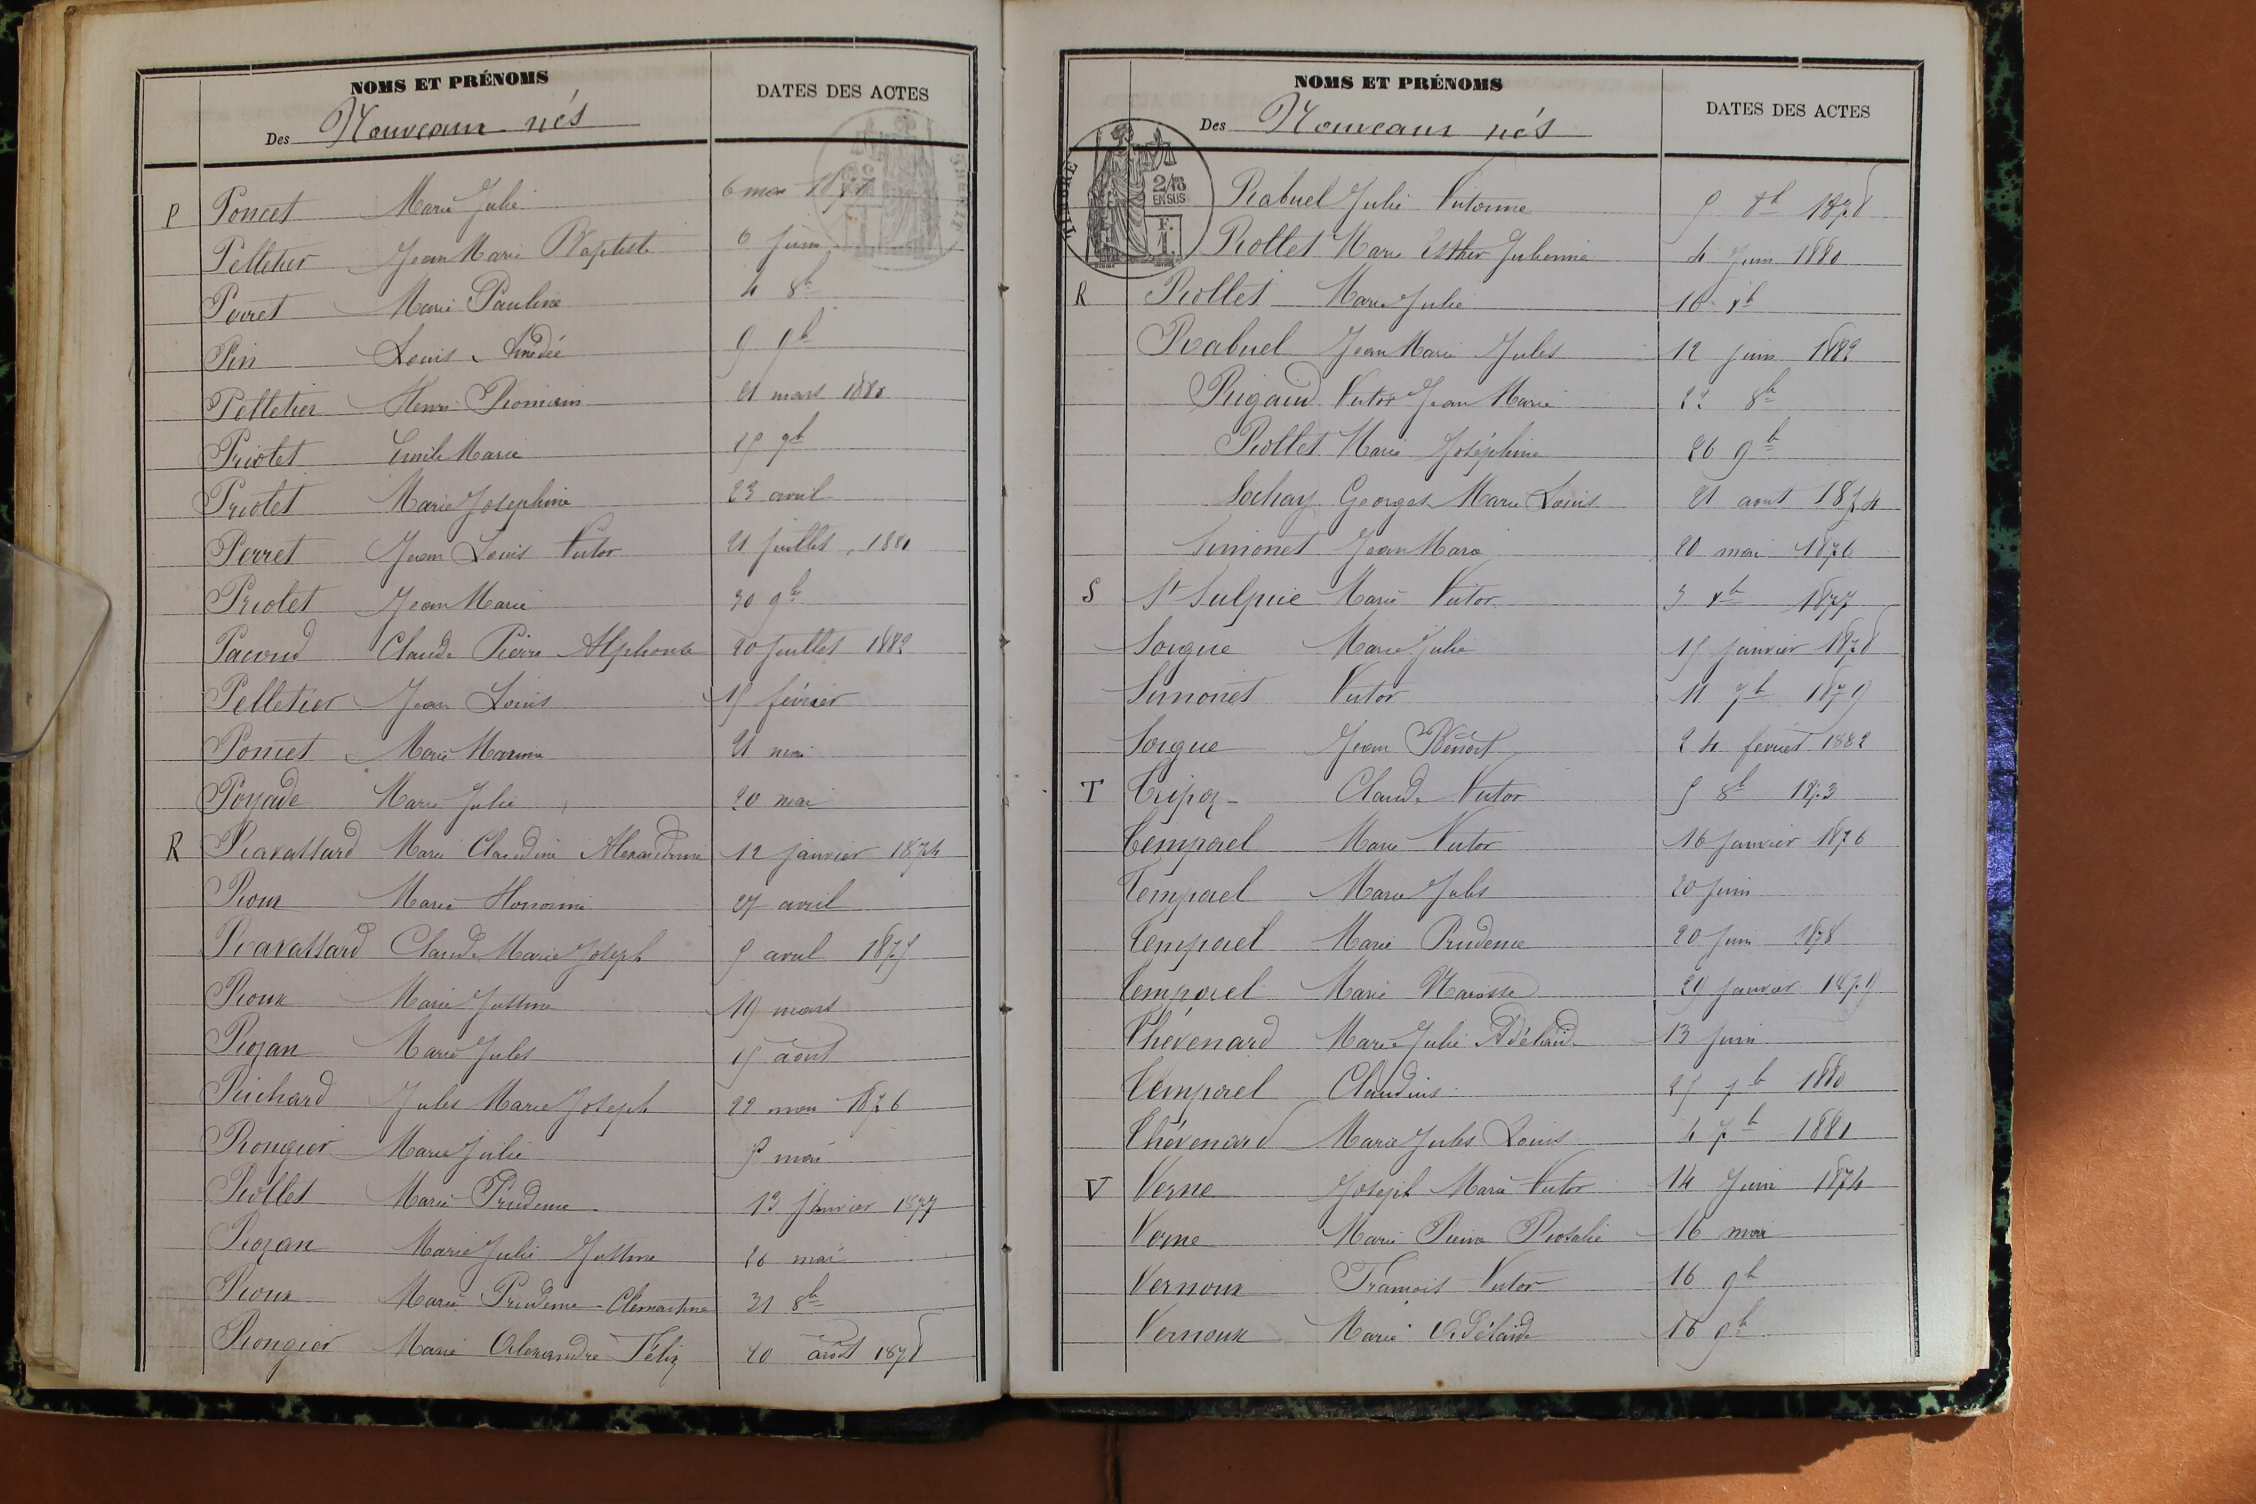 NOMS ET PRÉNOMS
Des Nouveaux nés
DATES DES ACTES
P Poncet Marie Julie 6 mai
Pelletier Jean Marie Baptiste 6 juin
Perret Marie Pauline 4 8b
Pin Louis Amédée 9 9b
Pelletier Henri Romain 21 mars 1880
Priolet Emile Marie 15 9b
Priolet Marie Josephine 23 avril
Perret Jean Louis Victor 21 juillet 1881
Priolet Jean Marie 30 9b
Pacoud Claude Pierre Alphonse 20 juillet 1882
Pelletier Jean Louis 15 février
Poncet Marie 21 mai
Poyade Marie Julie 20 mai
R Ravassard Marie Claudine Alexandrine 12 janvier 1874
Roux Marie Honorine 27 avril
Ravassard Claude Marie Joseph 5 avril 1875
Roux Marie Justine 19 mars
Rozan Marie Jules 15 août
Richard Jules Marie Joseph 22 mai 1876
Rongier Marie Julie mai
Rollet Marie Prudence 13 janvier 1877
Rozan Marie Julie Justine 26 mai
Roux Marie Prudence Clémentine 31 8b
Rongier Marie Alexandre Félix 20 août 1878
NOMS ET PRÉNOMS
Des Nouveaux nés
DATES DES ACTES
TIMBRE
2/10
EN SUS
F.
1.
Rabuel Julie Victorine 5 1878
Rollet Marie Esther Julienne 4 juin 1880
R Rollet Marie Julie 16 xb
Rabuel Jean Marie Jules 12 juin 1882
Rigaud Victor Jean Marie 22 8b
Rollet Marie Joséphine 26 9b
Sochay Georges Marie Louis 21 aout 1874
Simonet Jean Marie 20 mai 1876
S St Sulpice Marie Victor 3 xb 1877
Sorgue Marie Julie 15 janvier 1878
Simonet Victor 11 7b 1879
Sorgue Jean Benoit 24 février 1882
T Tripoz Claude Victor 5 8b 1873
Temporel Marie Victor 16 janvier 1876
Temporel Marie Jules 20 juin
Temporel Marie Prudence 20 juin 1878
Temporel Marie Narcisse 29 janvier 1879
Thévenard Marie Julie Adélaïde 13 juin
Temporel Claudius 25 7b 1880
Thévenard Marie Jules Louis 4 7b 1881
V Verne Joseph Marie Victor 14 Juin 1874
Verne Marie Pierre Rosalie 16 mai
Vernoux François Victor 16 9b
Vernoux Marie Adélaïde 16 9b